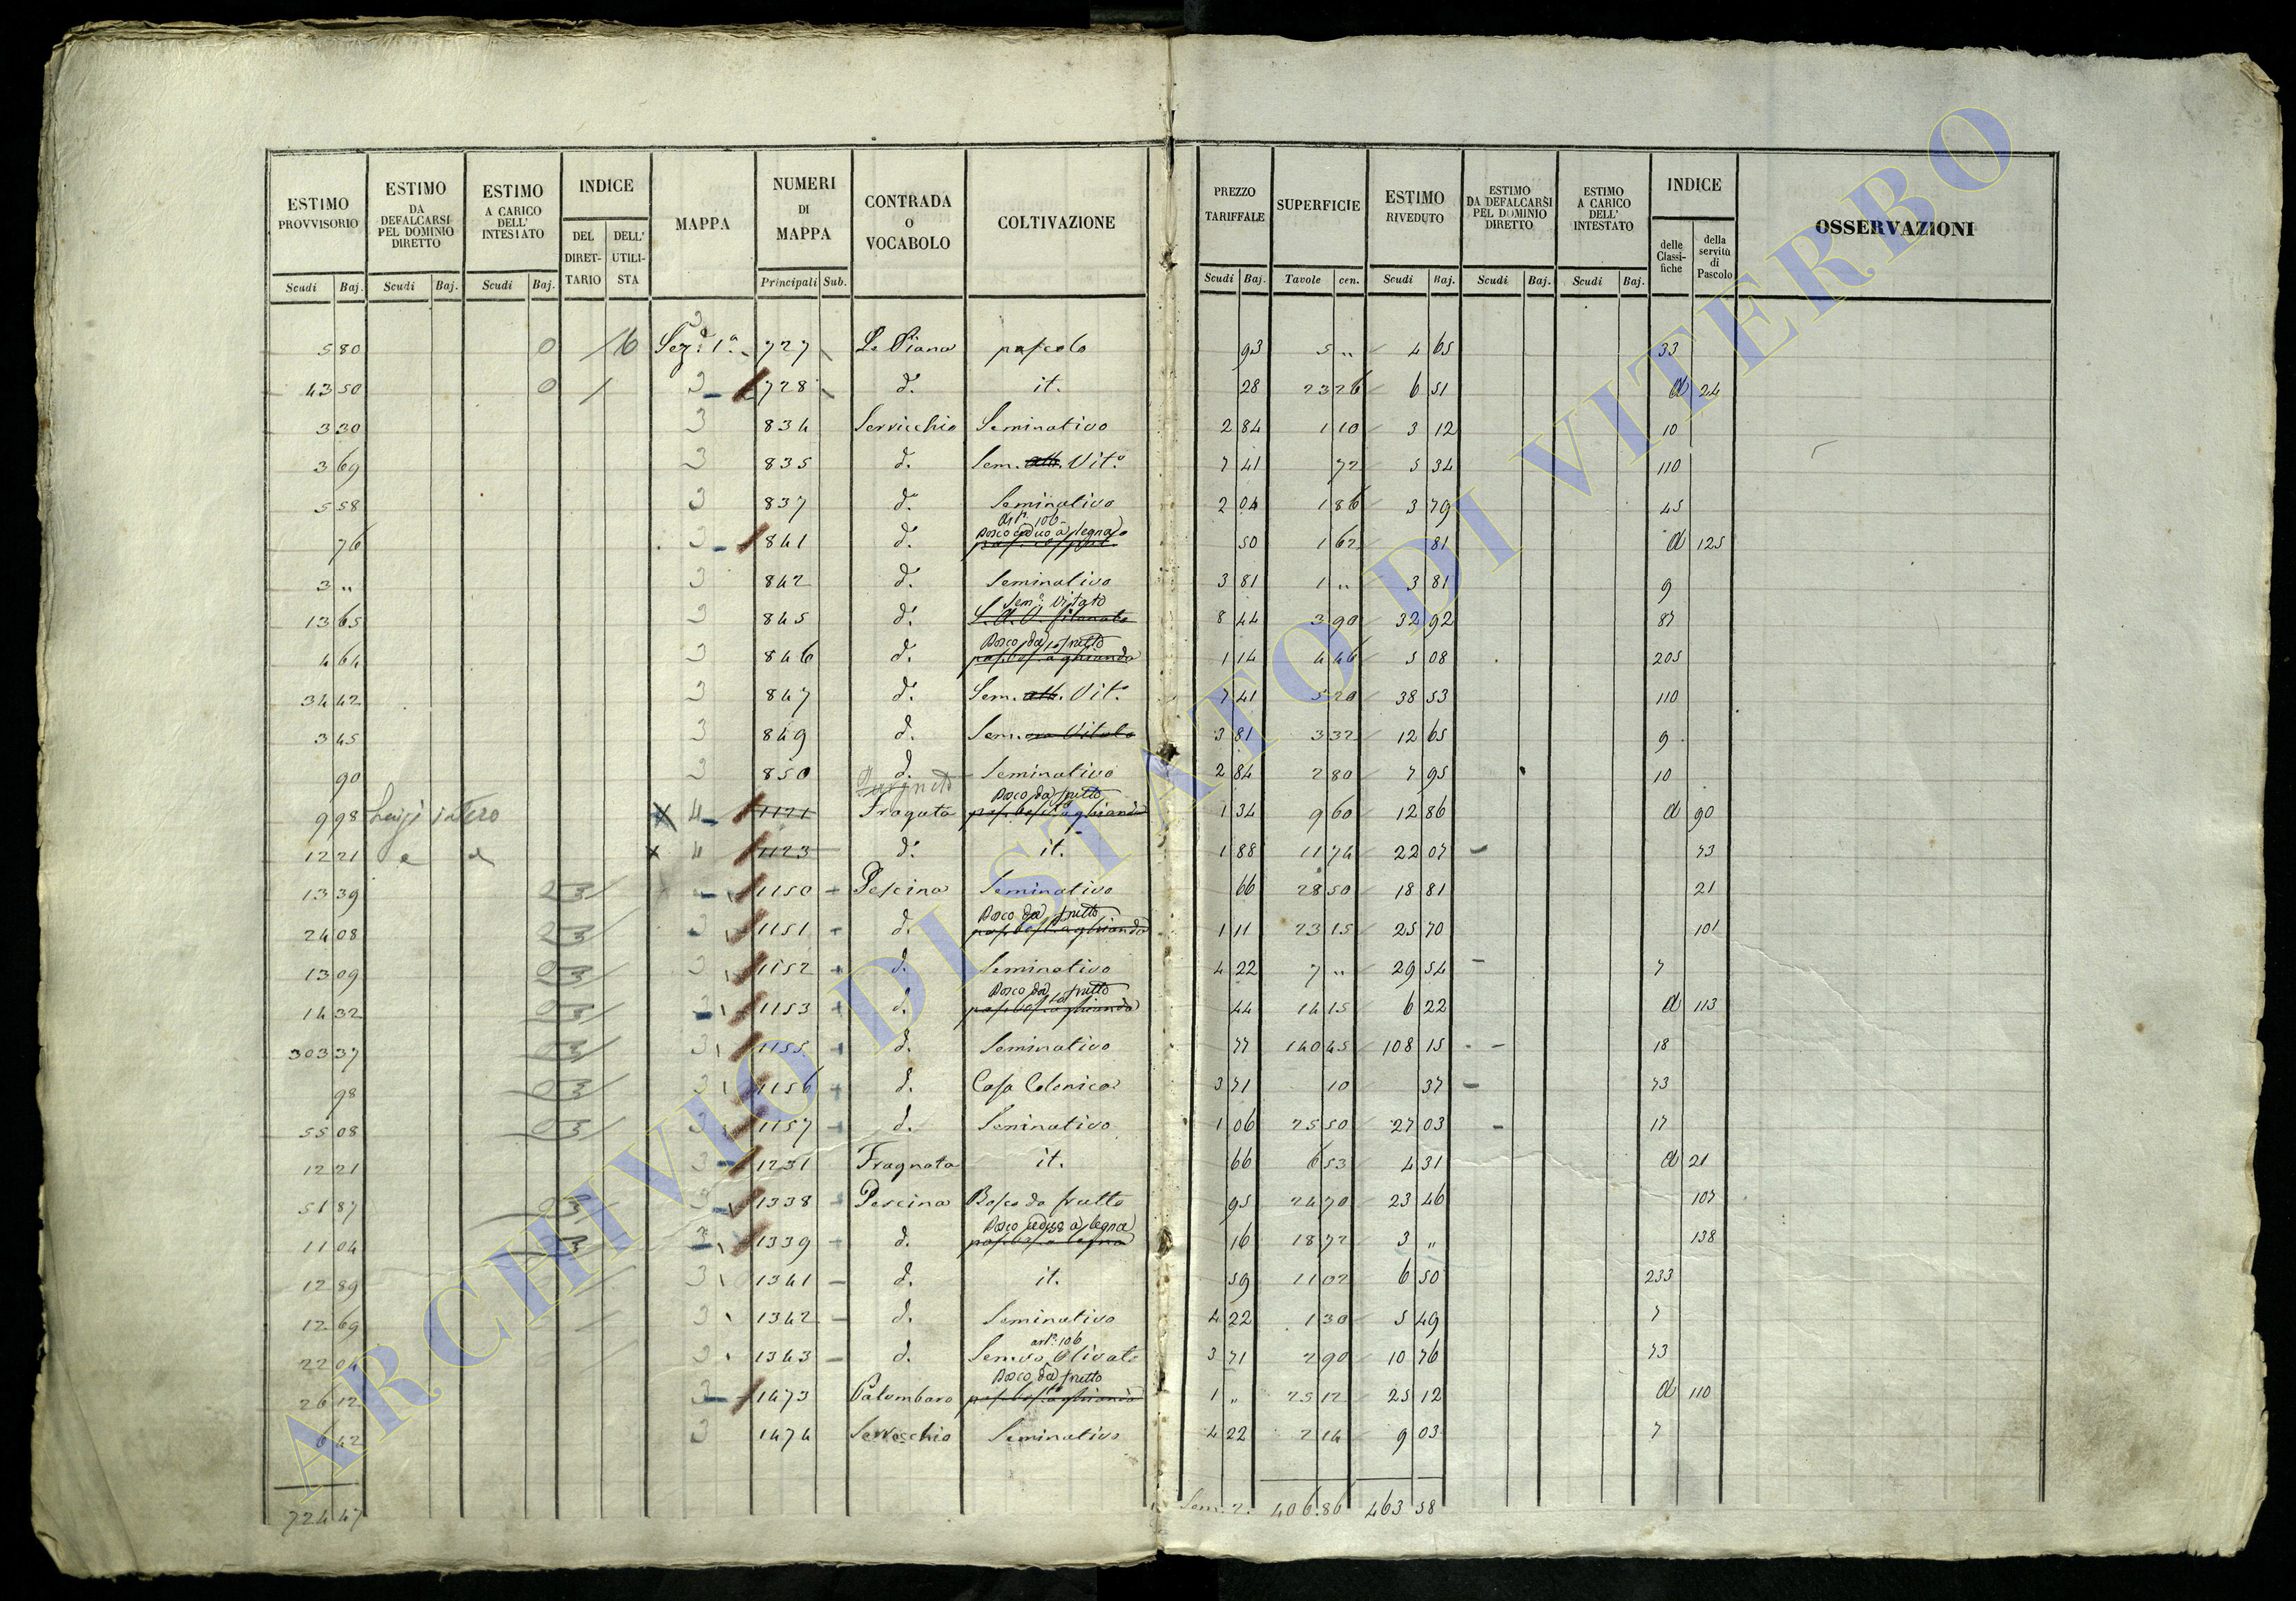 ESTIMO PROVVISORIO | ESTIMO DA DEFALCARSI PEL DOMINIO DIRETTO | ESTIMO A CARICO DELL' INTESTATO | INDICE | MAPPA | NUMERI DI MAPPA | CONTRADA O VOCABOLO | COLTIVAZIONE | PREZZO TARIFFALE | SUPERFICIE | ESTIMO RIVEDUTO | ESTIMO DA DEFALCARSI PEL DOMINIO DIRETTO | ESTIMO A CARICO DELL' INTESTATO | INDICE | OSSERVAZIONI
DEL DIRET-TARIO | DELL' UTILI-STA | delle Classi-fiche | della servitù di Pascolo
Scudi Baj. | Scudi Baj. | Scudi Baj. | Principali Sub. | Scudi Baj. | Tavole cen. | Scudi Baj. | Scudi Baj. | Scudi Baj.
5 80 | 0 | 16 | Sez.e 1a. | 727 | Le Piana | pascolo | 93 | 5 " | 4 65 | 33
43 50 | 0 | 3 | 728 | d.o | it. | 28 | 23 26 | 6 51 | a | 24
3 30 | 3 | 834 | Servicchio | Seminativo | 2 84 | 1 10 | 3 12 | 10
3 69 | 3 | 835 | d. | Sem. alb. Vit.o | 7 41 | 72 | 5 34 | 110
5 58 | 3 | 837 | d.o | Seminativo | 2 04 | 1 86 | 3 79 | 45
art. 106
Bosco ceduo a legna
76 | 3 | 841 | d.o | 50 | 1 62 | 81 | a | 125
3 " | 3 | 842 | d. | Seminativo | 3 81 | 1 " | 3 81 | 9
Sem.o Vitato
13 65 | 3 | 845 | d. | S. A. V. | 8 44 | 3 90 | 32 92 | 87
Bosco da frutto
4 64 | 3 | 846 | d. | pas. bos. a ghianda | 1 14 | 4 46 | 5 08 | 205
34 42 | 3 | 847 | d.o | Sem. alb. Vit.o | 7 41 | 5 20 | 38 53 | 110
3 45 | 3 | 849 | d. | Sem.vo Vitato | 3 81 | 3 32 | 12 65 | 9
90 | 3 | 850 | d. | Seminativo | 2 84 | 2 80 | 7 95 | 10
Bosco da frutto
9 98 | Luigi intero | X 4 | 1121 | Fragnata | pas. bos. a ghianda | 1 34 | 9 60 | 12 86 | a | 90
12 21 | x 4 | 1123 | d.o | it. | 1 88 | 11 74 | 22 07 | 73
13 39 | 23 | 1150 | Pescina | Seminativo | 66 | 28 50 | 18 81 | 21
Bosco da frutto
24 08 | 23 | 3 | 1151 | d. | pas. bos. a ghianda | 1 11 | 23 15 | 25 70 | 101
13 09 | 23 | 3 | 1152 | d. | Seminativo | 4 22 | 7 " | 29 54 | 7
Bosco da frutto
14 32 | 23 | 3 | 1153 | d. | pas. bos. a ghianda | 44 | 14 15 | 6 22 | a | 113
303 37 | 23 | 3 | 1155 | d. | Seminativo | 77 | 140 45 | 108 15 | 18
98 | 23 | 3 | 1156 | d. | Casa Colonica | 3 71 | 10 | 37 | 73
55 08 | 23 | 3 | 1157 | d. | Seminativo | 1 06 | 25 50 | 27 03 | 17
12 21 | 3 | 1231 | Fragnata | it. | 66 | 6 53 | 4 31 | a | 21
51 87 | 23 | 3 | 1338 | Pescina | Bosco da frutto | 95 | 24 70 | 23 46 | 107
Bosco ceduo a legna
11 04 | 23 | 3 | 1339 | d. | pas. bos. a legna | 16 | 18 72 | 3 " | 138
12 89 | 3 | 1341 | d. | it. | 59 | 11 02 | 6 50 | 233
12 69 | 3 | 1342 | d. | Seminativo | 4 22 | 1 30 | 5 49 | 7
art. 106
22 04 | 3 | 1343 | d. | Sem.vo Olivato | 3 71 | 2 90 | 10 76 | 73
Bosco da frutto
26 12 | 3 | 1473 | Palombaro | pas. bos. a ghianda | 1 " | 25 12 | 25 12 | a | 110
6 42 | 3 | 1474 | Servicchio | Seminativo | 4 22 | 2 14 | 9 03 | 7
724 47 | Som. | 406.86 | 463 58
ARCHIVIO DI STATO DI VITERBO